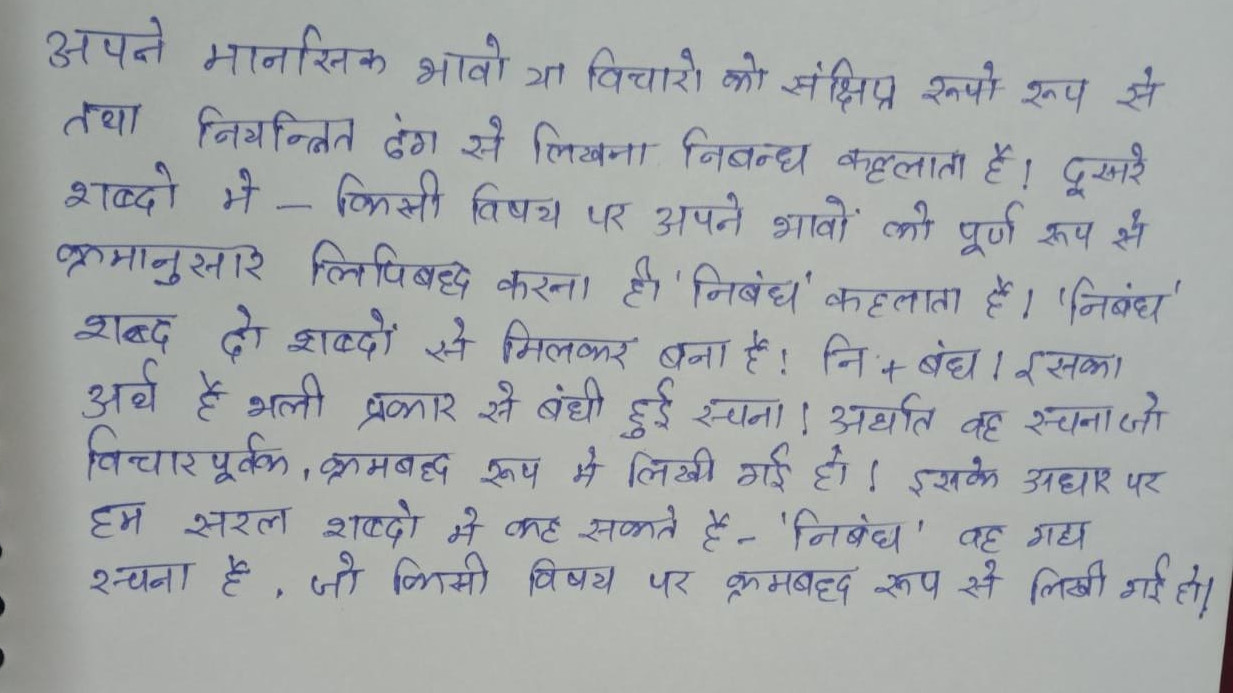 अपने मानसिक भावो या विचारो को संक्षिप्त रूपो रूप से
तथा नियन्त्रित ढंग से लिखना निबन्ध कहलाता है। दूसरे
शब्दो मे – किसी विषय पर अपने भावों को पूर्ण रूप से
क्रमानुसार लिपिबद्ध करना ही 'निबंध' कहलाता है। 'निबंध'
शब्द दो शब्दों से मिलकर बना है। नि + बंध। इसका
अर्थ है भली प्रकार से बंधी हुई रचना। अर्थात वह रचना जो
विचारपूर्वक, क्रमबद्ध रूप मे लिखी गई हो। इसके अधार पर
हम सरल शब्दो मे कह सकते है – 'निबंध' वह गद्य
रचना है, जो किसी विषय पर क्रमबद्ध रूप से लिखी गई हो।